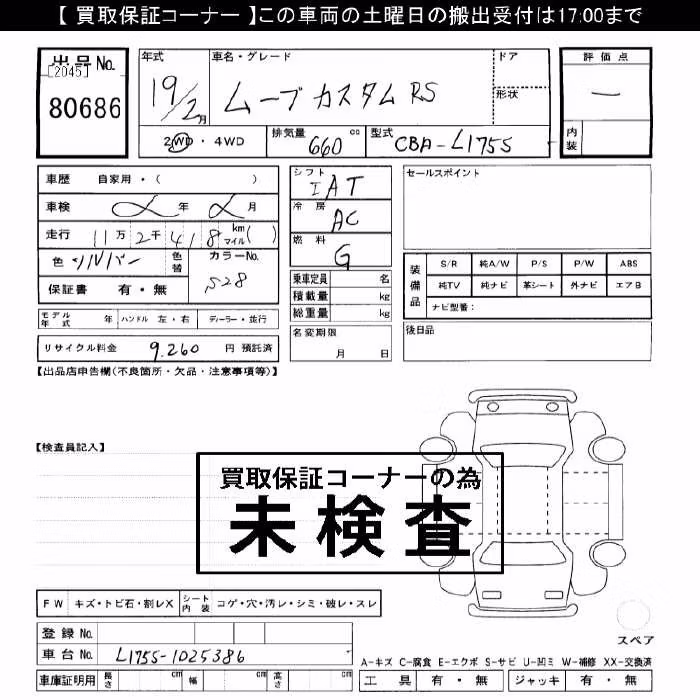 【 買取保証コーナー 】この車両の土曜日の搬出受付は17:00まで
出品No.
[2045]
80686
年式
19/2月
車名・グレード
ムーブカスタム RS
ドア
形状
評価点
一
内装
2WD・4WD
排気量 660 cc
型式 CBA-L175S
車歴 自家用・( )
車検 年 月
走行 11万2千418 km マイル( )
色 シルバー 色替 カラーNo. S28
保証書 有・無
シフト IAT
冷房 AC
燃料 G
乗車定員 名
積載量 kg
総重量 kg
セールスポイント
装備品 S/R 純A/W P/S P/W ABS
純TV 純ナビ 革シート 外ナビ エアB
ナビ型番:
モデル年式 年 ハンドル 左・右 ディーラー・並行
名変期限
月 日
後日品
リサイクル料金 9,260 円 預託済
【出品店申告欄(不良箇所・欠品・注意事項等)】
【検査員記入】
買取保証コーナーの為
未検査
FW キズ・トビ石・割レX シート内装 コゲ・穴・汚レ・シミ・破レ・スレ
登録No.
車台No. L175S-1025386
車庫証明用 長さ cm 幅 cm 高さ cm
スペア
A-キズ C-腐食 E-エクボ S-サビ U-凹ミ W-補修 XX-交換済
工具 有・無 ジャッキ 有・無